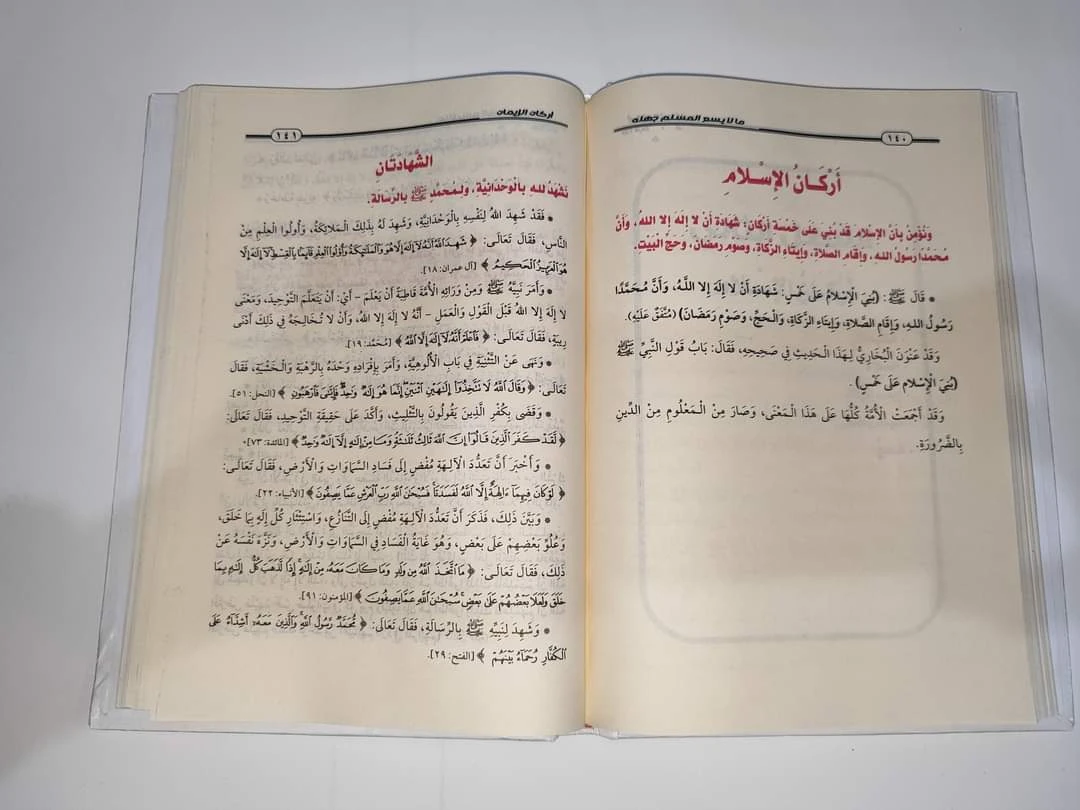 ما لا يسع المسلم جهله
١٤٠
أَرْكَانُ الإِسْلَامِ
وَنُؤْمِنُ بِأَنَّ الإِسْلَامَ قَدْ بُنِيَ عَلَى خَمْسَةِ أَرْكَانٍ: شَهَادَةِ أَنْ لَا إِلَهَ إِلَّا اللهُ، وَأَنَّ
مُحَمَّدًا رَسُولُ اللهِ، وَإِقَامِ الصَّلَاةِ، وَإِيتَاءِ الزَّكَاةِ، وَصَوْمِ رَمَضَانَ، وَحَجِّ الْبَيْتِ.
• قَالَ ﷺ: (بُنِيَ الْإِسْلَامُ عَلَى خَمْسٍ: شَهَادَةِ أَنْ لَا إِلَهَ إِلَّا اللَّهُ، وَأَنَّ مُحَمَّدًا
رَسُولُ اللهِ، وَإِقَامِ الصَّلَاةِ، وَإِيتَاءِ الزَّكَاةِ، وَالْحَجِّ، وَصَوْمِ رَمَضَانَ) (مُتَّفَقٌ عَلَيْهِ).
وَقَدْ عَنْوَنَ الْبُخَارِيُّ لِهَذَا الْحَدِيثِ فِي صَحِيحِهِ، فَقَالَ: بَابُ قَوْلِ النَّبِيِّ ﷺ
(بُنِيَ الْإِسْلَام عَلَى خَمْسٍ) .
وَقَدْ أَجْمَعَتِ الْأُمَّةُ كُلُّهَا عَلَى هَذَا الْمَعْنَى، وَصَارَ مِنَ الْمَعْلُومِ مِنَ الدِّينِ
بِالضَّرُورَةِ.
أركان الإيمان
١٤١
الشَّهَادَتَانِ
نَشْهَدُ للهِ بِالْوَحْدَانِيَّةِ، وَلِمُحَمَّدٍ ﷺ بِالرِّسَالَةِ.
• فَقَدْ شَهِدَ اللهُ لِنَفْسِهِ بِالْوَحْدَانِيَّةِ، وَشَهِدَ لَهُ بِذَلِكَ الْمَلَائِكَةُ، وَأُولُوا الْعِلْمِ مِنَ
النَّاسِ، فَقَالَ تَعَالَى: ﴿ شَهِدَ ٱللَّهُ أَنَّهُۥ لَآ إِلَٰهَ إِلَّا هُوَ وَٱلْمَلَٰٓئِكَةُ وَأُو۟لُوا۟ ٱلْعِلْمِ قَآئِمًۢا بِٱلْقِسْطِ لَآ إِلَٰهَ إِلَّا
هُوَ ٱلْعَزِيزُ ٱلْحَكِيمُ ﴾ [آل عمران: ١٨].
• وَأَمَرَ نَبِيَّهُ ﷺ وَمِنْ وَرَائِهِ الْأُمَّةَ قَاطِبَةً أَنْ يَعْلَمَ – أَيْ: أَنْ يَتَعَلَّمَ التَّوْحِيدَ، وَمَعْنَى
لَا إِلَهَ إِلا اللهُ قَبْلَ الْقَوْلِ وَالْعَمَلِ – أَنَّهُ لَا إِلَهَ إِلا اللهُ، وَأَنْ لَا تُخَالِجَهُ فِي ذَلِكَ أَدْنَى
رِيبَةٍ، فَقَالَ تَعَالَى: ﴿ فَٱعْلَمْ أَنَّهُۥ لَآ إِلَٰهَ إِلَّا ٱللَّهُ ﴾ [مُحَمَّد: ١٩].
• وَنَهَى عَنْ التَّثْنِيَةِ فِي بَابِ الْأُلُوهِيَّةِ، وَأَمَرَ بِإِفْرَادِهِ وَحْدَهُ بِالرَّهْبَةِ وَالْخَشْيَةِ، فَقَالَ
تَعَالَى: ﴿ وَقَالَ ٱللَّهُ لَا تَتَّخِذُوٓا۟ إِلَٰهَيْنِ ٱثْنَيْنِ إِنَّمَا هُوَ إِلَٰهٌ وَٰحِدٌ فَإِيَّٰىَ فَٱرْهَبُونِ ﴾ [النحل: ٥١].
• وَقَضَى بِكُفْرِ الَّذِينَ يَقُولُونَ بِالتَّثْلِيثِ، وَأَكَّدَ عَلَى حَقِيقَةِ التَّوْحِيدِ، فَقَالَ تَعَالَى:
﴿ لَّقَدْ كَفَرَ ٱلَّذِينَ قَالُوٓا۟ إِنَّ ٱللَّهَ ثَالِثُ ثَلَٰثَةٍ وَمَا مِنْ إِلَٰهٍ إِلَّآ إِلَٰهٌ وَٰحِدٌ ﴾ [المائدة: ٧٣].
• وَأَخْبَرَ أَنَّ تَعَدُّدَ الْآلِهَةِ مُفْضٍ إِلَى فَسَادِ السَّمَاوَاتِ وَالْأَرْضِ، فَقَالَ تَعَالَى:
﴿ لَوْ كَانَ فِيهِمَآ ءَالِهَةٌ إِلَّا ٱللَّهُ لَفَسَدَتَا فَسُبْحَٰنَ ٱللَّهِ رَبِّ ٱلْعَرْشِ عَمَّا يَصِفُونَ ﴾ [الأنبياء: ٢٢].
• وَبَيَّنَ ذَلِكَ، فَذَكَرَ أَنَّ تَعَدُّدَ الْآلِهَةِ مُفْضٍ إِلَى التَّنَازُعِ، وَاسْتِئْثَارِ كُلِّ إِلَهٍ بِمَا خَلَقَ،
وَعُلُوِّ بَعْضِهِمْ عَلَى بَعْضٍ، وَهُوَ غَايَةُ الْفَسَادِ فِي السَّمَاوَاتِ وَالْأَرْضِ، وَنَزَّهَ نَفْسَهُ عَنْ
ذَلِكَ، فَقَالَ تَعَالَى: ﴿ مَا ٱتَّخَذَ ٱللَّهُ مِن وَلَدٍ وَمَا كَانَ مَعَهُۥ مِنْ إِلَٰهٍ إِذًا لَّذَهَبَ كُلُّ إِلَٰهٍۭ بِمَا
خَلَقَ وَلَعَلَا بَعْضُهُمْ عَلَىٰ بَعْضٍ سُبْحَٰنَ ٱللَّهِ عَمَّا يَصِفُونَ ﴾ [المؤمنون: ٩١].
• وَشَهِدَ لِنَبِيِّهِ ﷺ بِالرِّسَالَةِ، فَقَالَ تَعَالَى: ﴿ مُّحَمَّدٌ رَّسُولُ ٱللَّهِ وَٱلَّذِينَ مَعَهُۥٓ أَشِدَّآءُ عَلَى
ٱلْكُفَّارِ رُحَمَآءُ بَيْنَهُمْ ﴾ [الفتح: ٢٩].